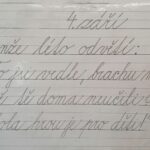 4. září
mže léto odvětí:
o při vedle, brachu
tě doma neučili
ola hrou je pro děti!